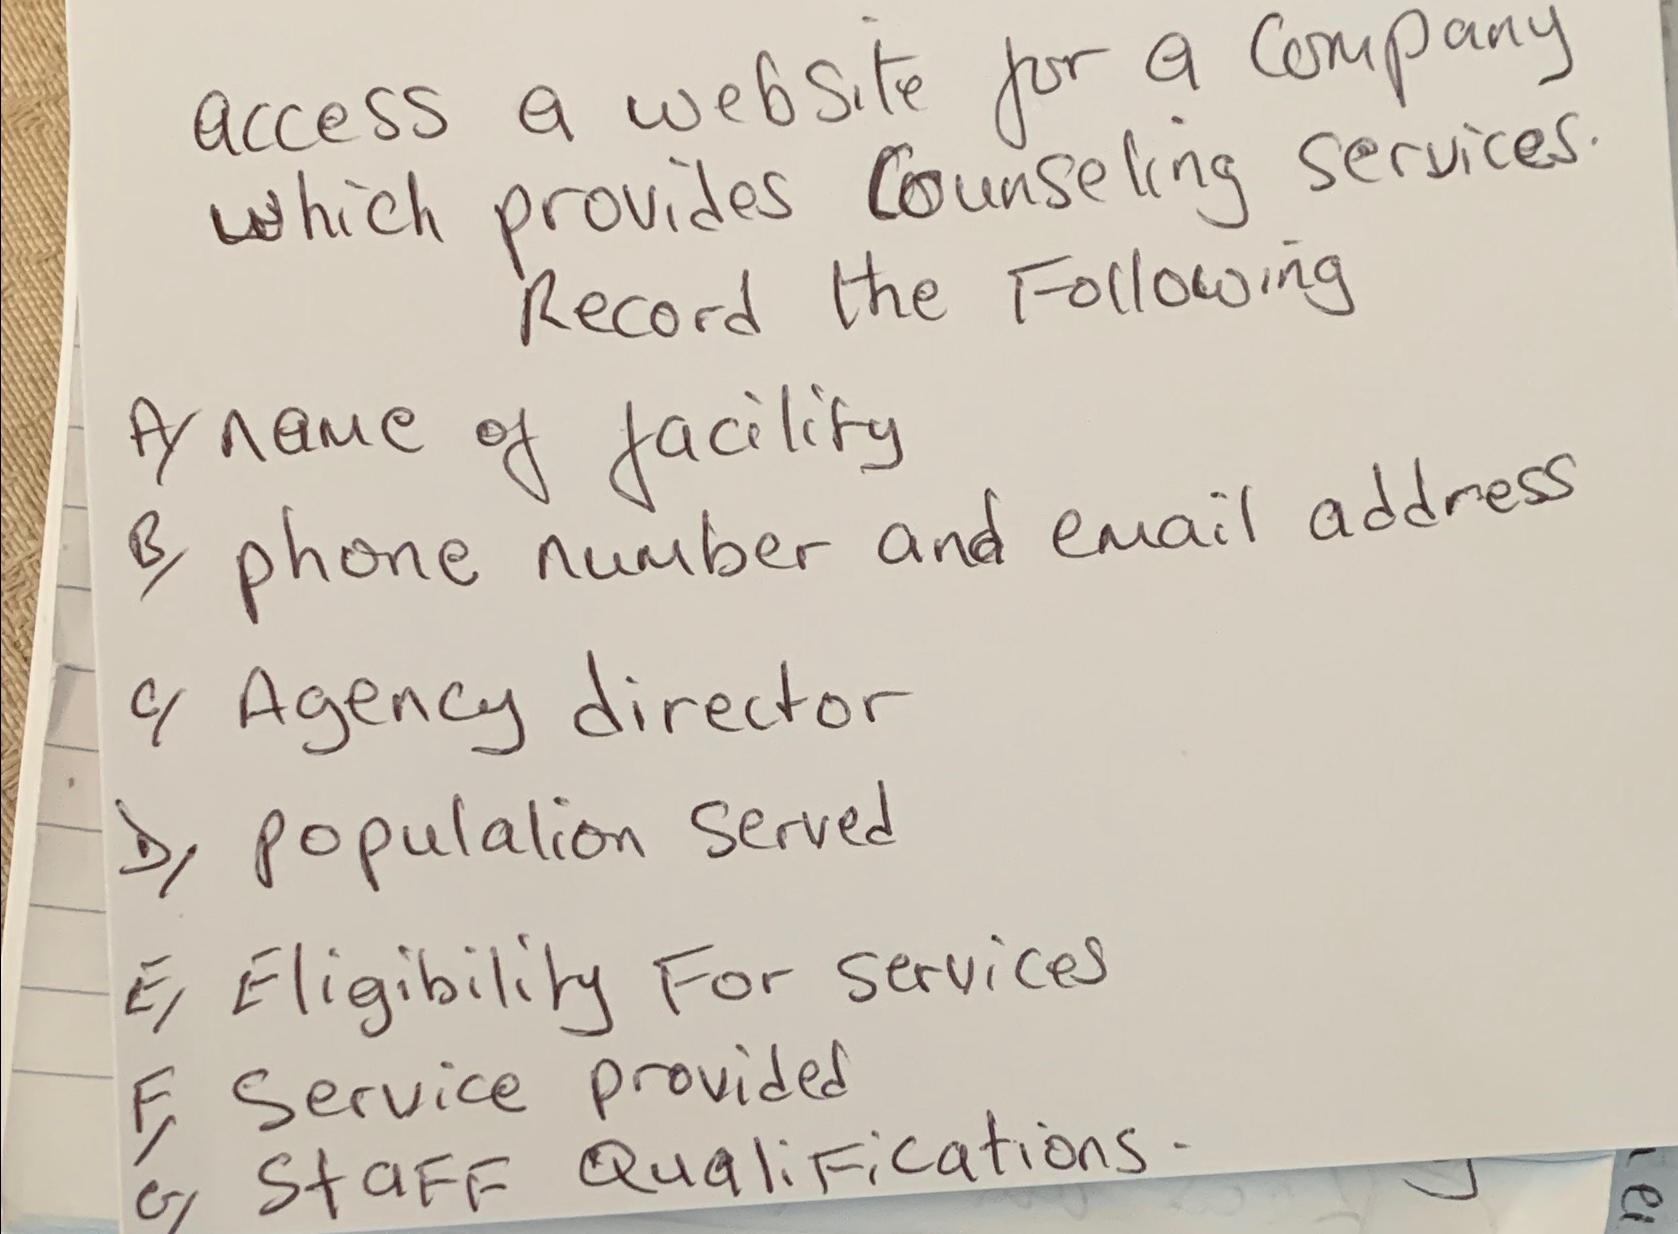 access a website for a Company
which provides Counseling services.
Record the Following
A/ name of facility
B/ phone number and email address
C/ Agency director
D/ population served
E/ Eligibility For services
F/ Service provided
G/ StaFF QualiFications.